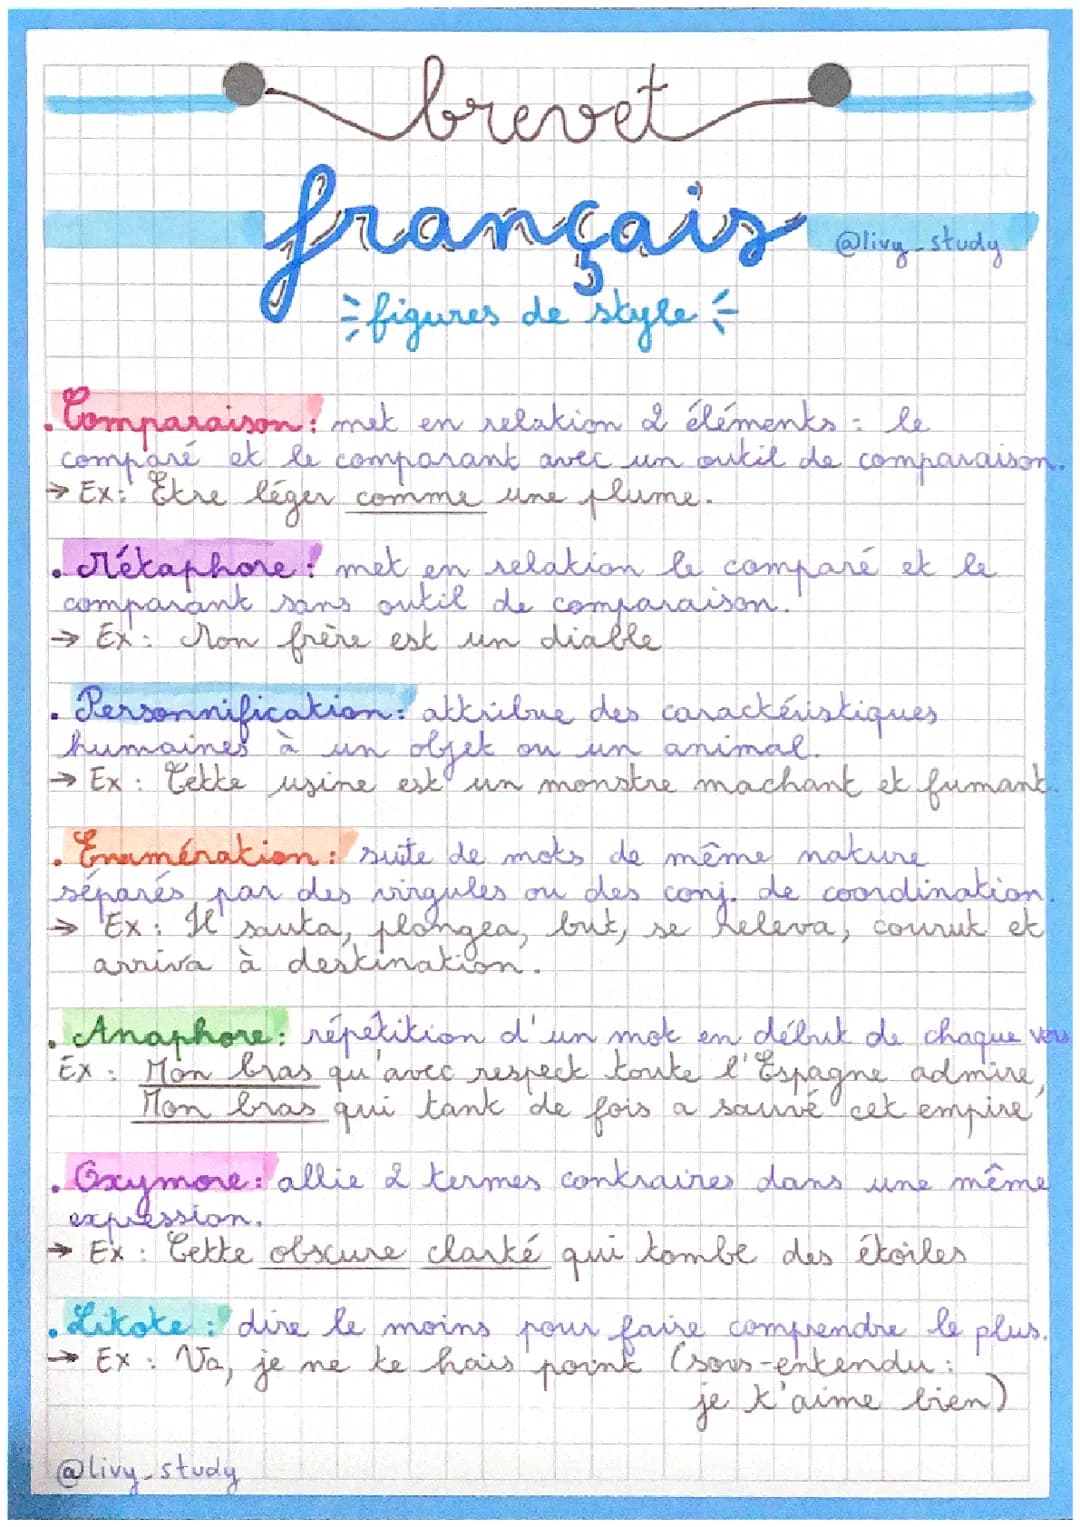 brevet
français
@livy_study
figures de style
. Comparaison : met en relation 2 éléments : le
comparé et le comparant avec un outil de comparaison.
→ Ex : Etre léger comme une plume.
. Métaphore : met en relation le comparé et le
comparant sans outil de comparaison.
→ Ex : Mon frère est un diable
. Personnification : attribue des caractéristiques
humaines à un objet ou un animal.
→ Ex : Cette usine est un monstre machant et fumant.
. Enumération : suite de mots de même nature
séparés par des virgules ou des conj. de coordination.
→ Ex : Il sauta, plongea, but, se releva, courut et
arriva à destination.
. Anaphore : répétition d'un mot en début de chaque vers
Ex : Mon bras qu'avec respect toute l'Espagne admire,
Mon bras qui tant de fois a sauvé cet empire
. Oxymore : allie 2 termes contraires dans une même
expression.
→ Ex : Cette obscure clarté qui tombe des étoiles
. Litote : dire le moins pour faire comprendre le plus.
→ Ex : Va, je ne te hais point (sous-entendu :
je t'aime bien)
@livy_study